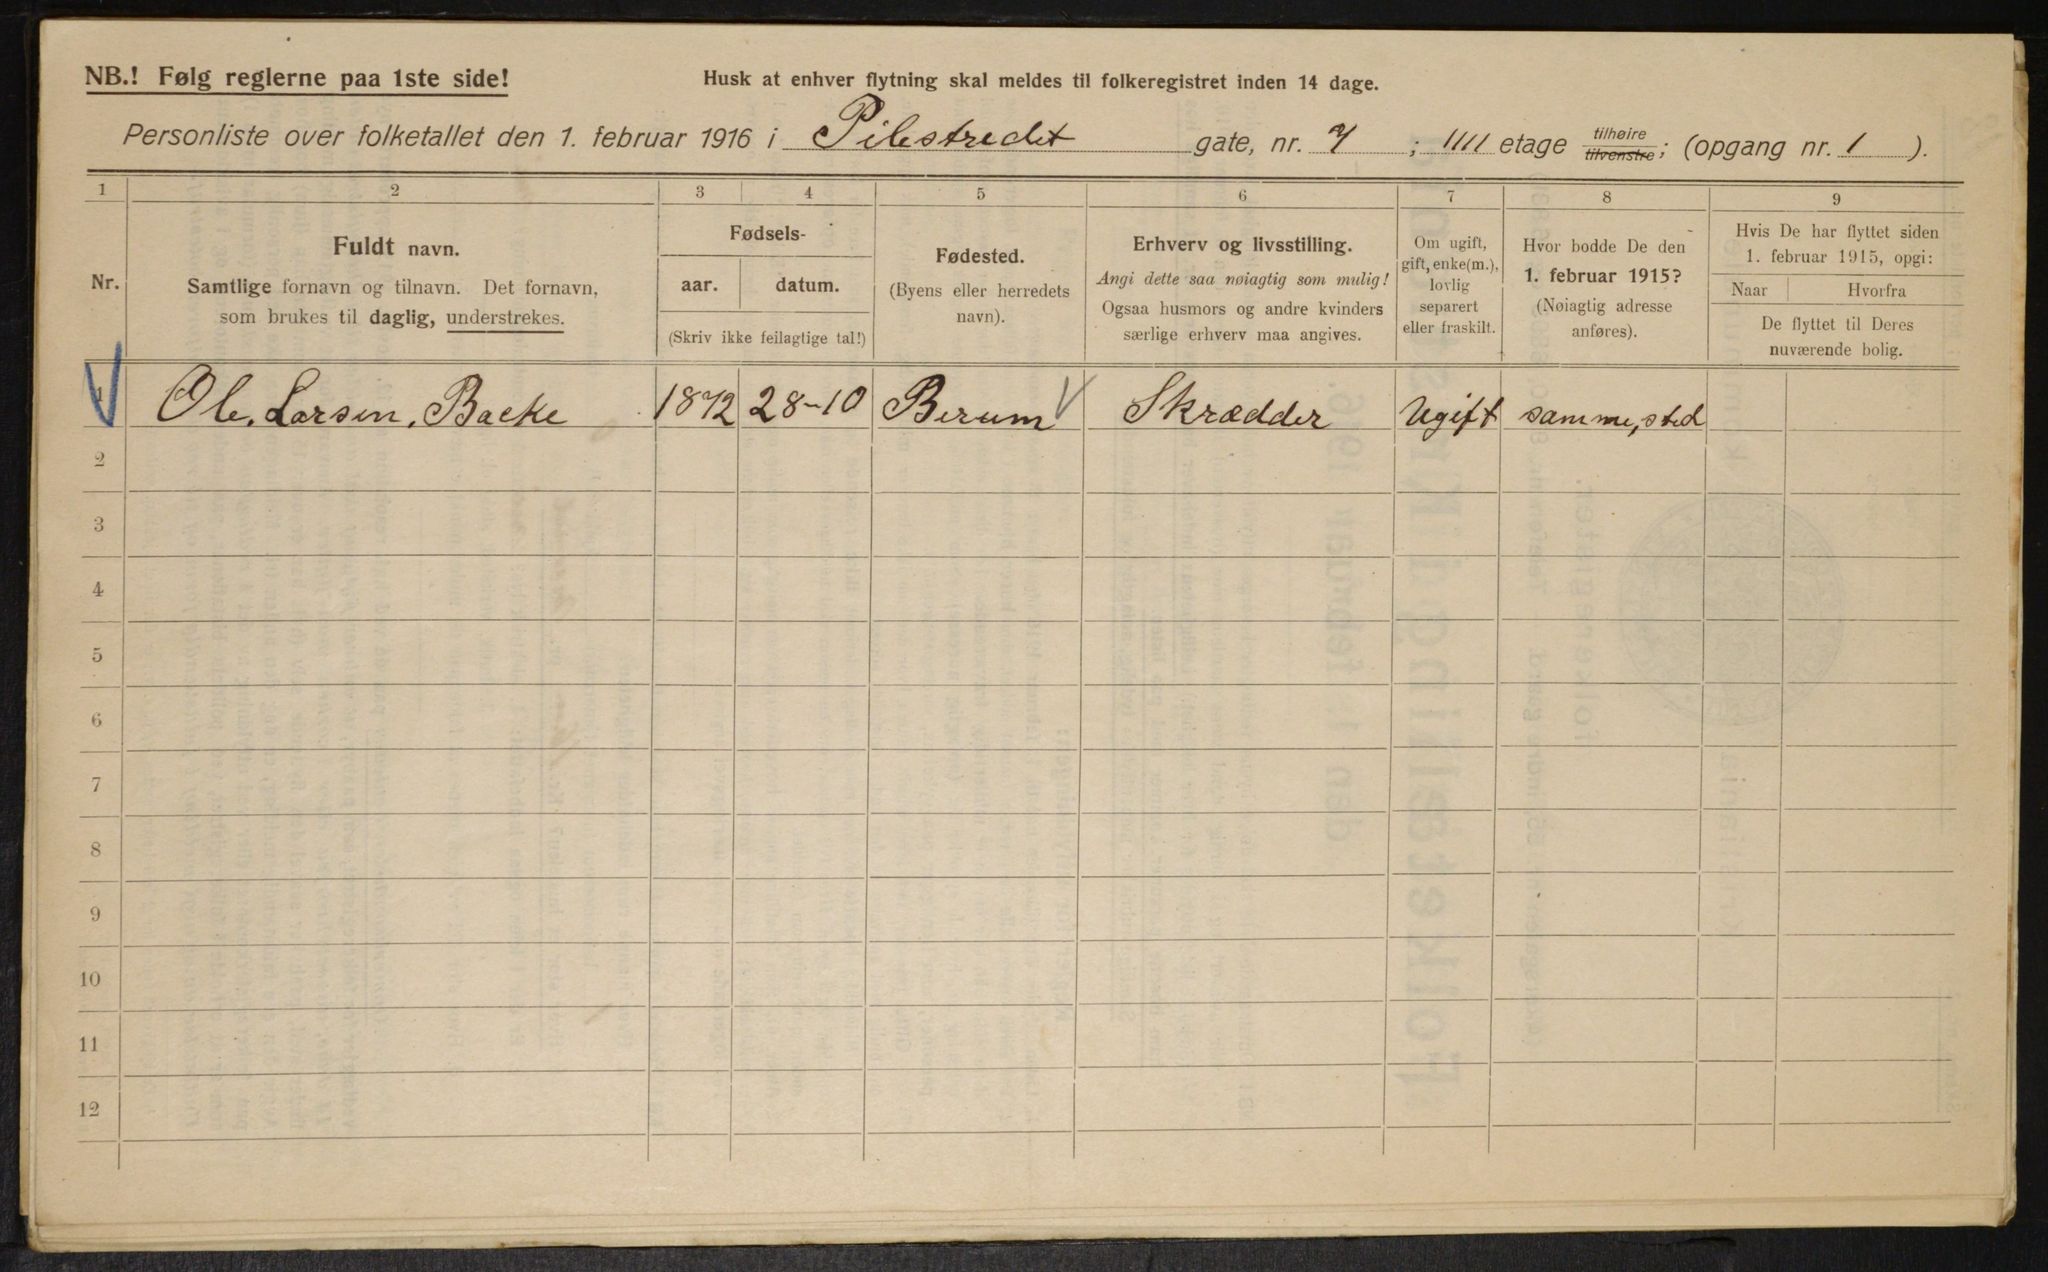 NB.! Følg reglerne paa 1ste side!
Husk at enhver flytning skal meldes til folkeregistret inden 14 dage.
Personliste over folketallet den 1. februar 1916 i Pilestredet gate, nr. 7 ; 1111 etage tilhøire tilvenstre; (opgang nr. 1 ).
1 2 3 4 5 6 7 8 9
Nr.
Fuldt navn.
Samtlige fornavn og tilnavn. Det fornavn,
som brukes til daglig, understrekes.
Fødsels-
aar. datum.
(Skriv ikke feilagtige tal!)
Fødested.
(Byens eller herredets
navn).
Erhverv og livsstilling.
Angi dette saa nøiagtig som mulig!
Ogsaa husmors og andre kvinders
særlige erhverv maa angives.
Om ugift,
gift, enke(m.),
lovlig
separert
eller fraskilt.
Hvor bodde De den
1. februar 1915?
(Nøiagtig adresse
anføres).
Hvis De har flyttet siden
1. februar 1915, opgi:
Naar Hvorfra
De flyttet til Deres
nuværende bolig.
1 Ole. Larsen. Backe 1872 28-10 Berum Skrædder Ugift samme, sted
2
3
4
5
6
7
8
9
10
11
12